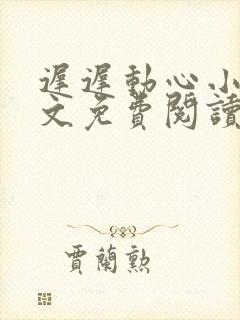 遲遲動心小
文免費閱讀
賈蘭勲